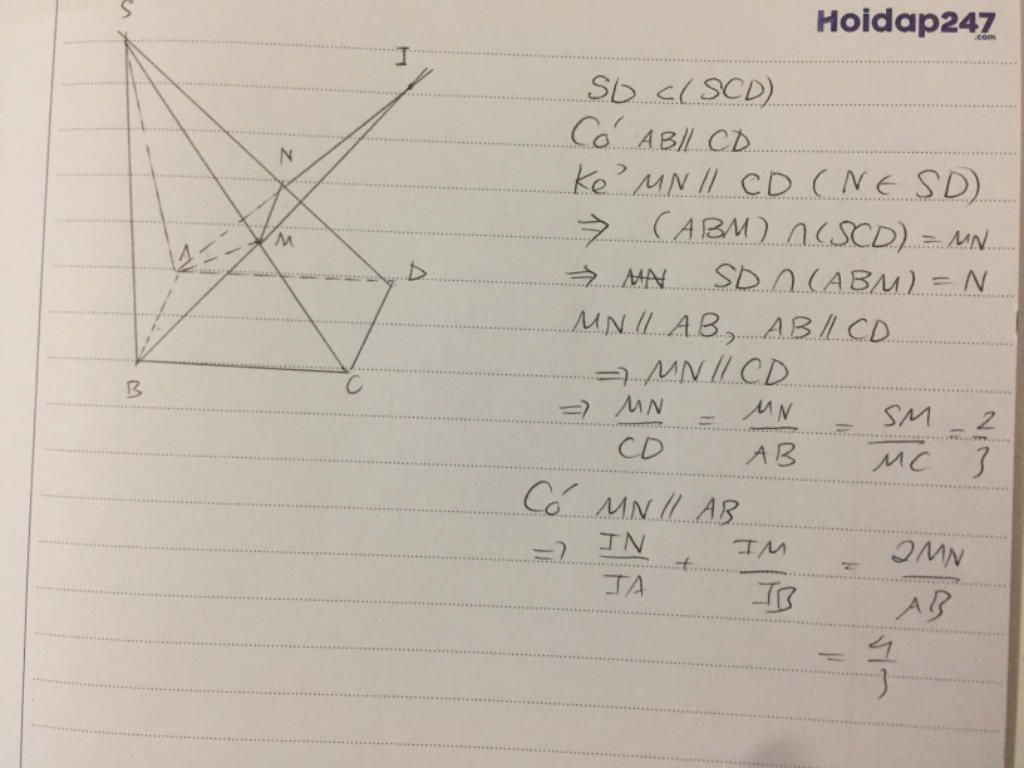 Hoidap247
.com
S
I
N
M
A
D
B
C
SD ⊂ (SCD)
Có AB // CD
Kẻ MN // CD (N ∈ SD)
⇒ (ABM) ∩ (SCD) = MN
⇒ MN SD ∩ (ABM) = N
MN // AB, AB // CD
⇒ MN // CD
⇒ MN/CD = MN/AB = SM/MC = 2/3
Có MN // AB
⇒ IN/IA + IM/IB = 2MN/AB
= 4/3